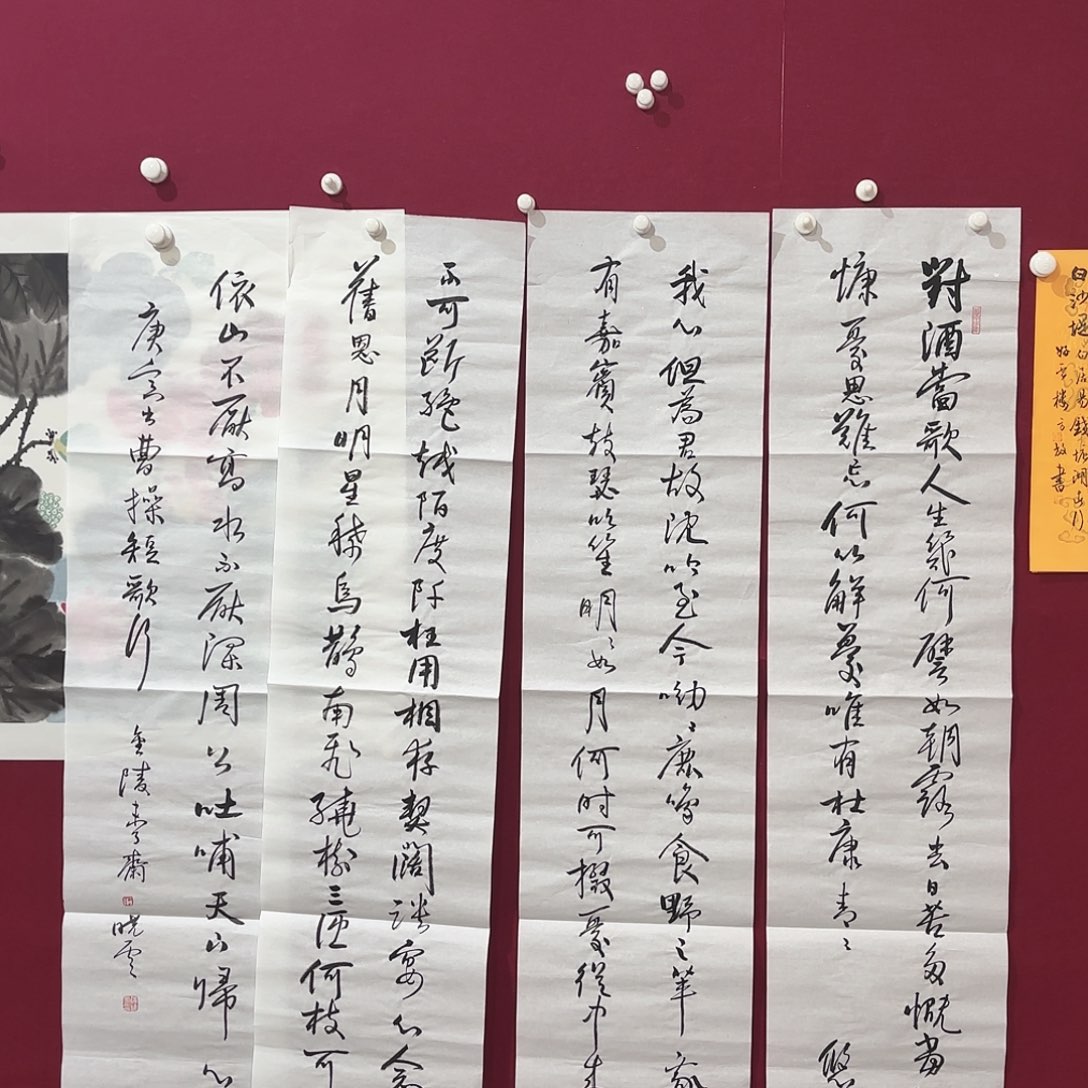 白沙堤
白居易錢塘湖出行
對酒當歌人生幾何譬如朝露去日苦多慨當
慷憂思難忘何以解憂唯有杜康青〻悠
我心但為君故沈吟至今呦〻鹿鳴食野之苹我
有嘉賓鼓瑟吹笙明〻如月何时可掇憂從中来
不可斷絕越陌度阡枉用相存契闊談宴心念
舊恩月明星稀烏鵲南飛繞樹三匝何枝可
依山不厭高水不厭深周公吐哺天下歸心
庚寅書曹操短歌行 金陵 齋 曉雲